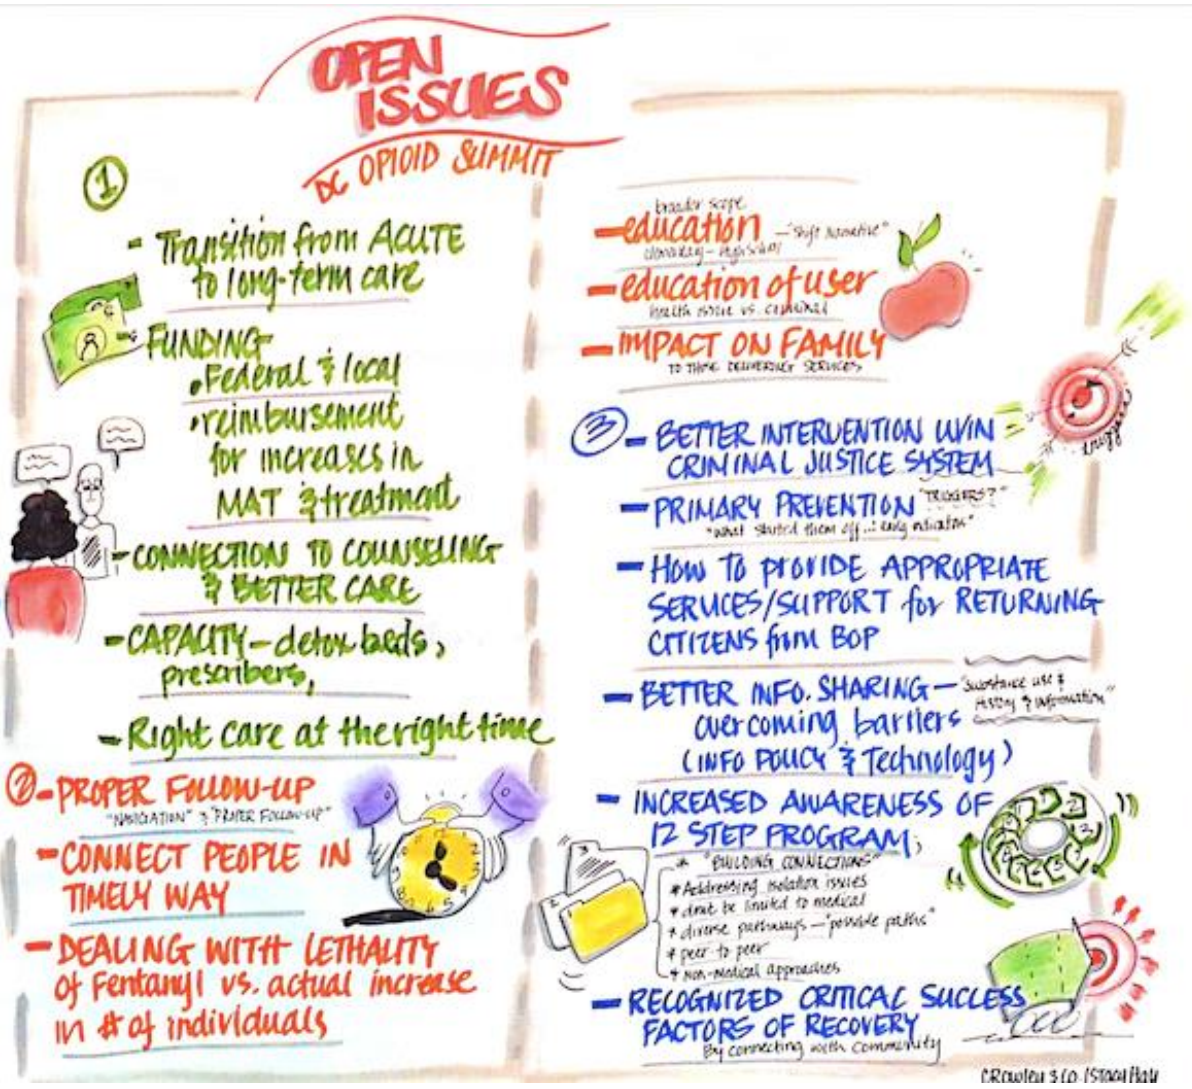 OPEN
ISSUES
DC OPIOID SUMMIT
1
- Transition from ACUTE
to long-term care
- FUNDING
• Federal & local
• reimbursement
for increases in
MAT & treatment
- CONNECTION TO COUNSELING
& BETTER CARE
- CAPACITY - detox beds,
prescribers,
- Right care at the right time
2 - PROPER FOLLOW-UP
"NAVIGATION" & "PROPER FOLLOW-UP"
- CONNECT PEOPLE IN
TIMELY WAY
- DEALING WITH LETHALITY
of Fentanyl vs. actual increase
in # of individuals
broader scope
- education - "shift narrative"
- education of user
health issue vs. criminal
- IMPACT ON FAMILY
TO THOSE DELIVERING SERVICES
3 - BETTER INTERVENTION W/IN
CRIMINAL JUSTICE SYSTEM
triggers
- PRIMARY PREVENTION "TRIGGERS?"
"what started them off...: early indicator"
- HOW TO PROVIDE APPROPRIATE
SERVICES/SUPPORT for RETURNING
CITIZENS from BOP
- BETTER INFO. SHARING - "substance use &
History & information"
overcoming barriers
(INFO POLICY & Technology)
- INCREASED AWARENESS OF
12 STEP PROGRAM;
* "BUILDING CONNECTIONS"
* Addressing isolation issues
* dont be limited to medical
* diverse pathways - "possible paths"
* peer to peer
* non-medical approaches
- RECOGNIZED CRITICAL SUCCESS
FACTORS OF RECOVERY
By connecting with community